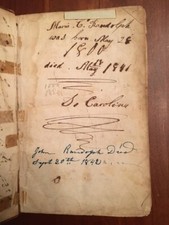 C. Randolph
was born May 28
1800
died May 1841
So Caroline
John Randolph Died
Sept 20th 1842